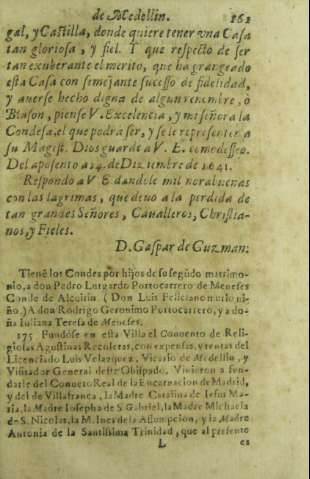 de Medellin. 161
gal, y Castilla, donde quiere tener vna Casa
tan gloriosa, y fiel. Y que respecto de ser
tan exuberante el merito, que ha grangeado
esta Casa con semejante sucesso de fidelidad,
y auerse hecho digna de algun renombre, o
Blason, piense V. Excelencia, y mi señora la
Condesa, el que podra ser, y se le represente a
su Magest. Dios guarde a V. E. como desseo.
Del aposento a 24. de Diziembre de 1641.
Respondo a V E dandole mil norabuenas
con las lagrimas, que deuo a la perdida de
tan grandes Señores, Caualleros, Christia-
nos, y Fieles.
D. Gaspar de Guzman:
Tienē los Condes por hijos deste segūdo matrimo-
nio, a don Pedro Luzgardo Portocarrero de Meneses
Conde de Alcoutin. (Don Luis Feliciano murio ni-
ño.) A don Rodrigo Geronimo Portocarrero, y a do-
ña Iuliana Teresa de Meneses.
175 Fundóse en esta Villa el Conuento de Reli-
giosas Agustinas Recoletas, con expensas, y rentas del
Licenciado Luis Velazquez, Vicario de Medellin, y
Visitador General deste Obispado. Vinieron a fun-
darle del Conuēto Real de la Encarnacion de Madrid,
y del de Villafranca, la Madre Catalina de Iesus Ma-
ria, la Madre Iosepha de S. Gabriel, la Madre Michaela
de S. Nicolas, la M. Ines de la Assumpcion, y la Madre
Antonia de la Santissima Trinidad, que al presente
L es